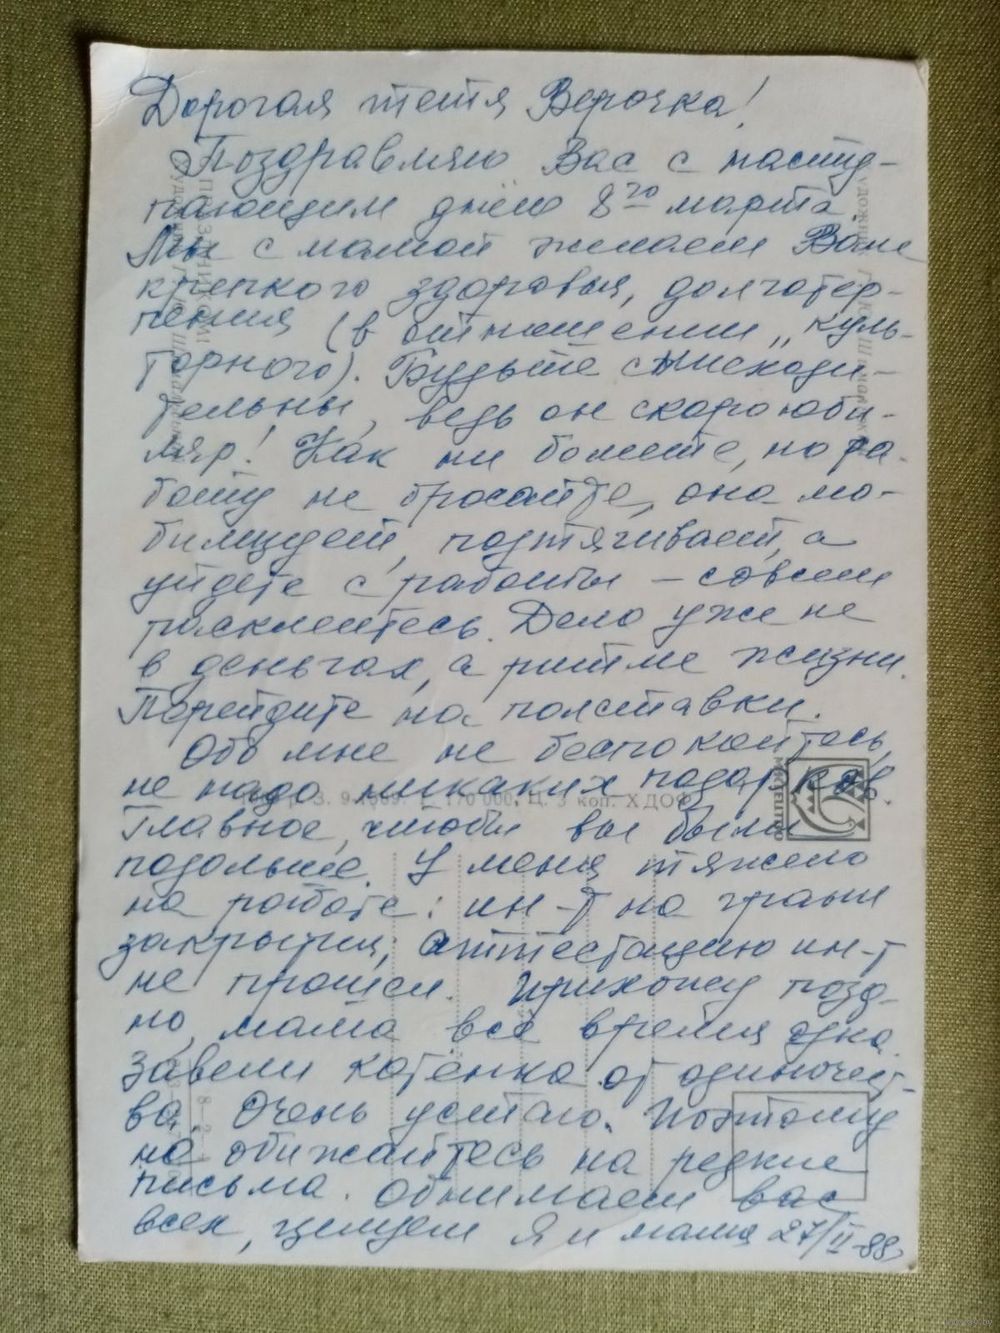 Дорогая тетя Верочка!
Поздравляю Вас с насту-
пающим днём 8го марта.
Мы с мамой желаем Вам
крепкого здоровья, долготер-
пения (в отношении „Куль-
торного). Будьте снисходи-
тельны, ведь он скоро юби-
ляр! Как ни болеете, но ра-
боту не бросайте, она мо-
билизует, подтягивает, а
уйдете с работы — совсем
расклеитесь. Дело уже не
в деньгах, а ритме жизни.
Перейдите на полставки.
Обо мне не беспокойтесь,
не надо никаких подарков.
Главное, чтобы вы были
подольше. У меня тяжело
на работе: ин-т на грани
закрытия, аттестацию ин-т
не прошел. Прихожу позд-
но, мама всё время одна.
Завели котёнка от одиночест-
ва. Очень устаю. Поэтому
не обижайтесь на редкие
письма. Обнимаем вас
всех, целуем Я и мама 27/II-88
З. 9-1669. Т. 170 000. Ц. 3 коп. ХДОФ